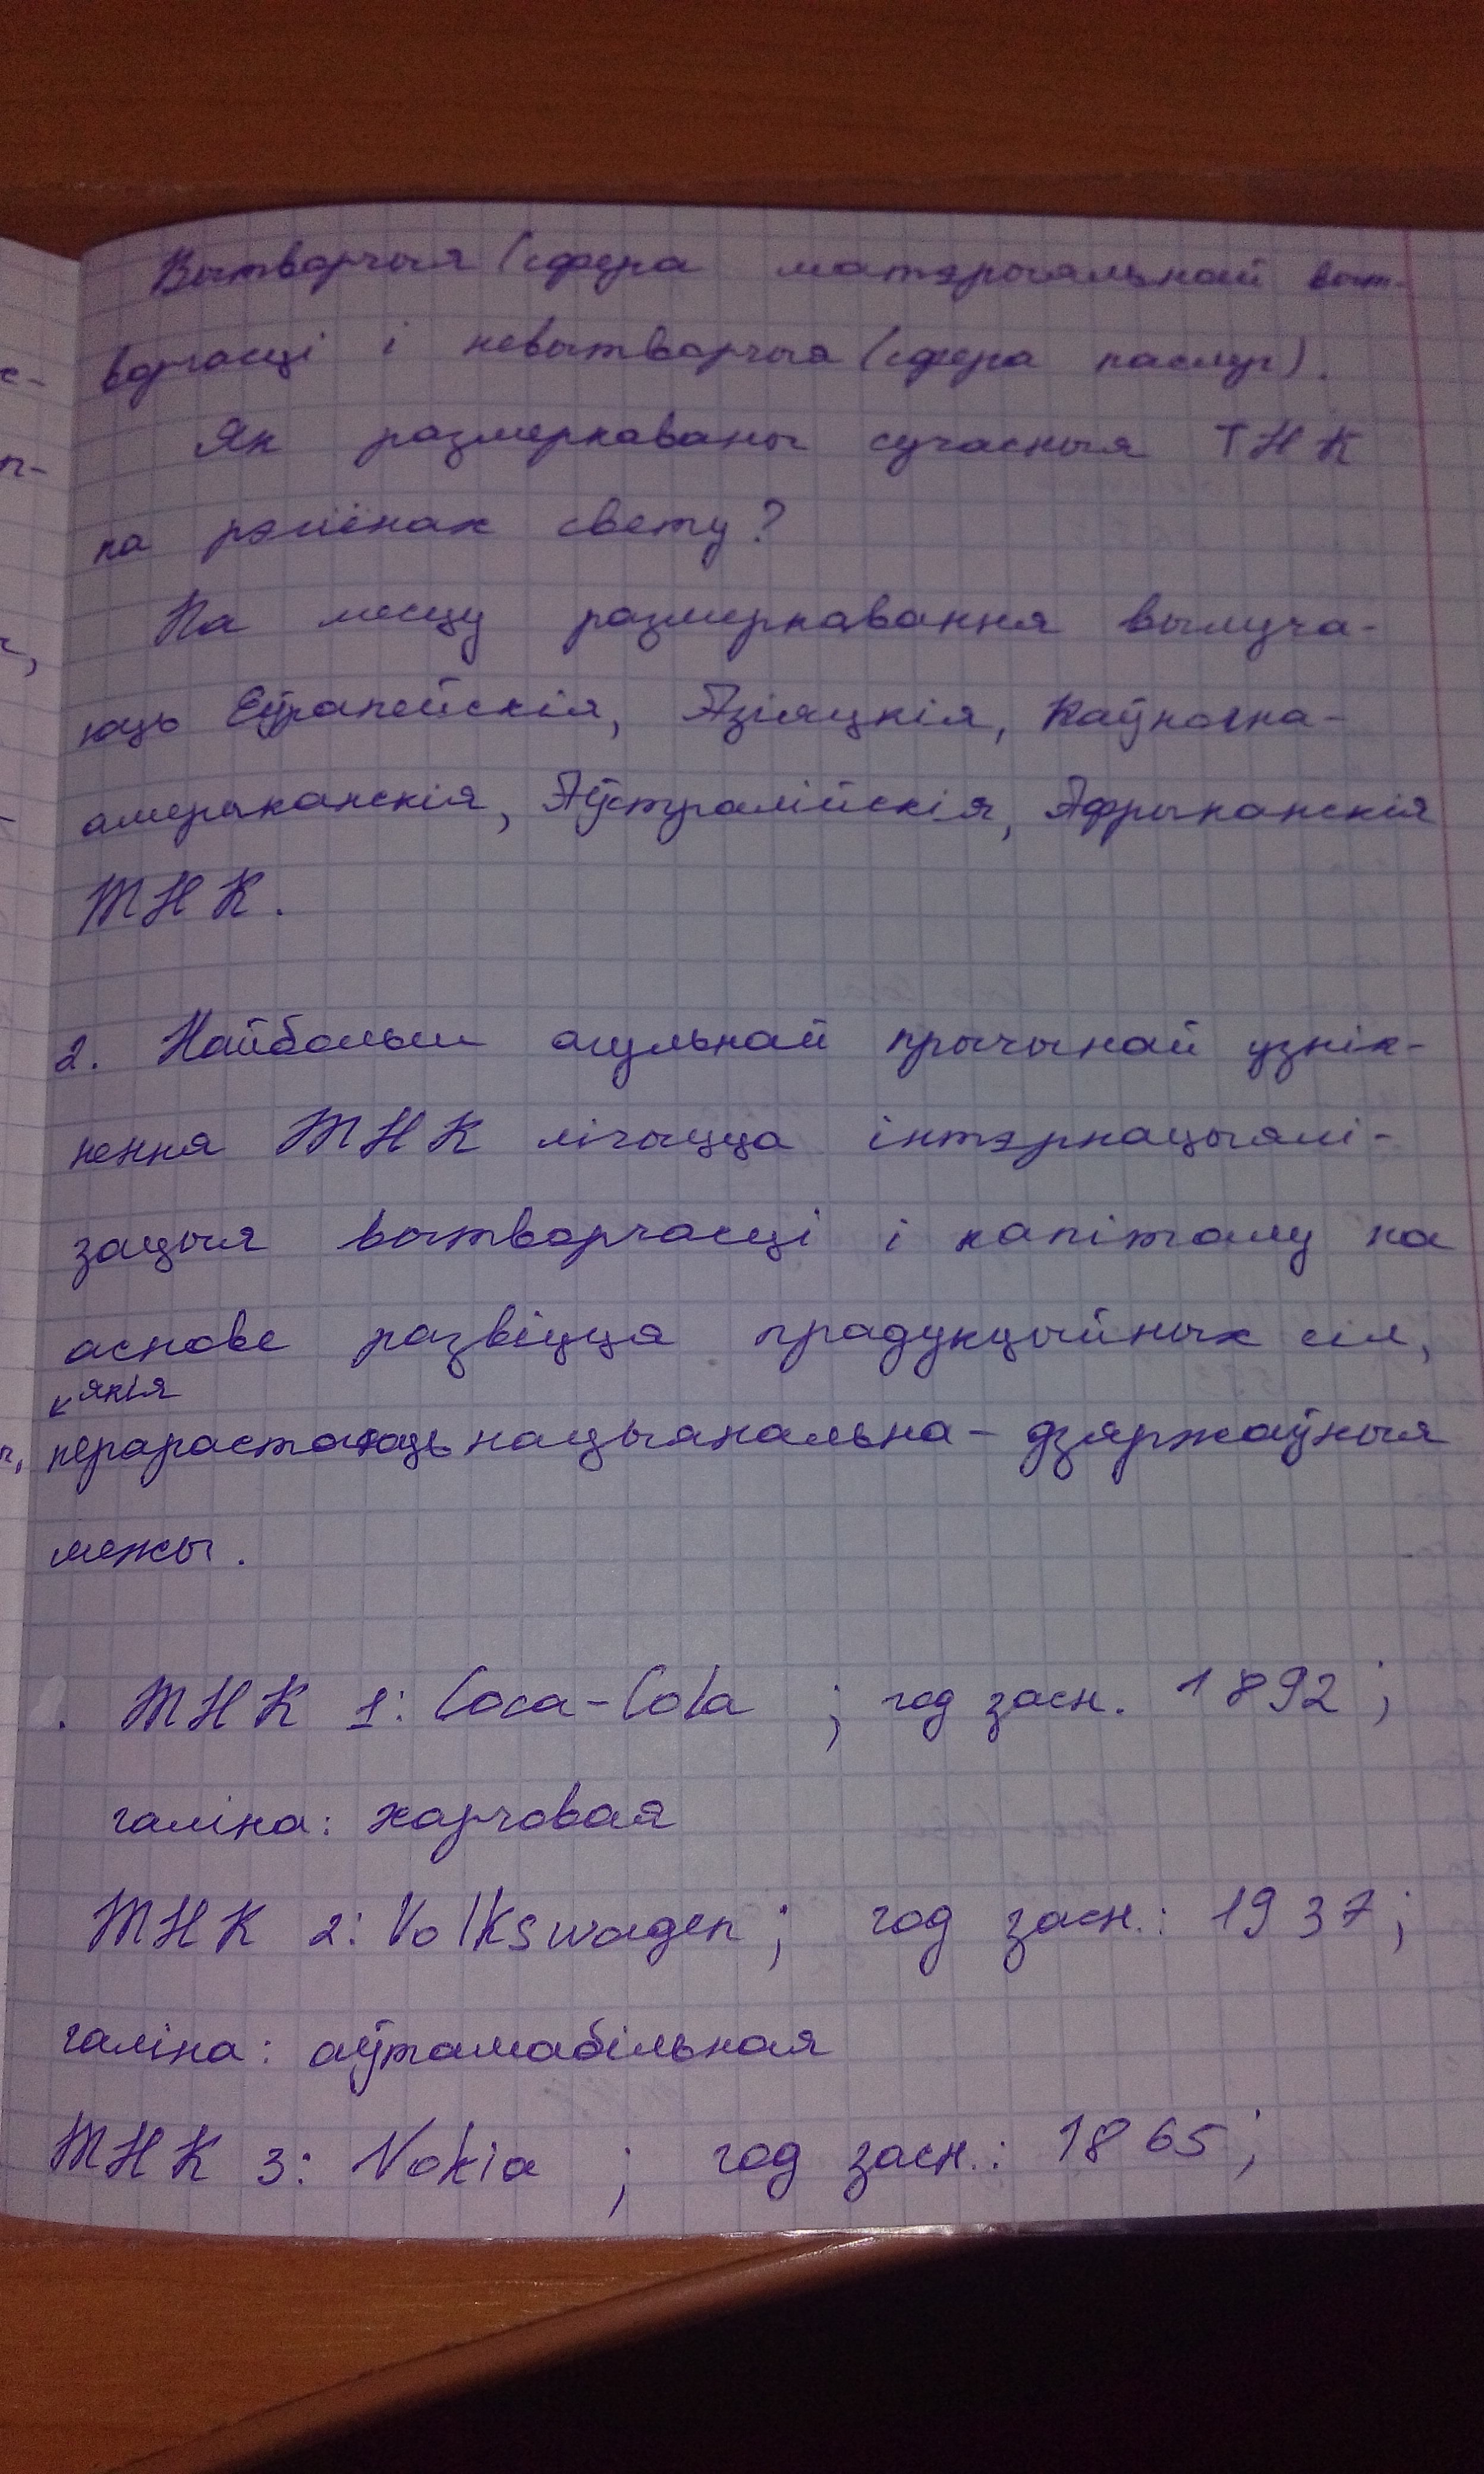 Вытворчыя (сфера матэрыяльнай выт-
ворчасці і невытворчыя (сфера паслуг).
Як размеркаваны сучасныя ТНК
па рэгіёнах свету?
Па месцу размеркавання вылуча-
юць Еўрапейскія, Азіяцкія, Паўночна-
амерыканскія, Аўстралійскія, Афрыканскія
ТНК.
2. Найбольш агульнай прычынай узнік-
нення ТНК лічыцца інтэрнацыялі-
зацыя вытворчасці і капіталу на
аснове развіцця прадукцыйных сіл,
якія
перарастаюць нацыянальна-дзяржаўныя
межы.
ТНК 1: Coca-Cola ; год засн. 1892;
галіна: харчовая
ТНК 2: Volkswagen; год засн.: 1937;
галіна: аўтамабільная
ТНК 3: Nokia ; год засн.: 1865;